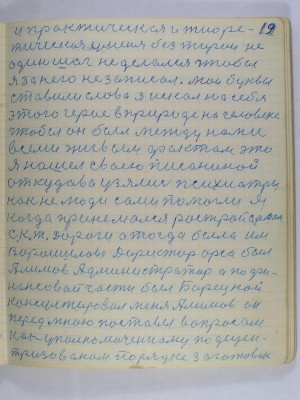 и практическая и тиоре- 19
тическая имени без тирии не
один шаг не делался чтобы
я за него не записал. Мои буквы
ставили слова я искал на себя
этого герие в природе на человека
чтобы он был между нами
всеми живым фрактом это
я нашел своею писаниной
откудова узялись психиатры
как не люди сами помогли я
когда принемался рострой
С.К.Ж. дороги а тогда была им
Ворошилова Деристир орса был
Алимов Администратор а по фи-
нансовай части был Борецкой
консультировал меня Алимов он
перед мною поставел вопросом
как уполномоченому по децен-
трозованом порядке заготовок